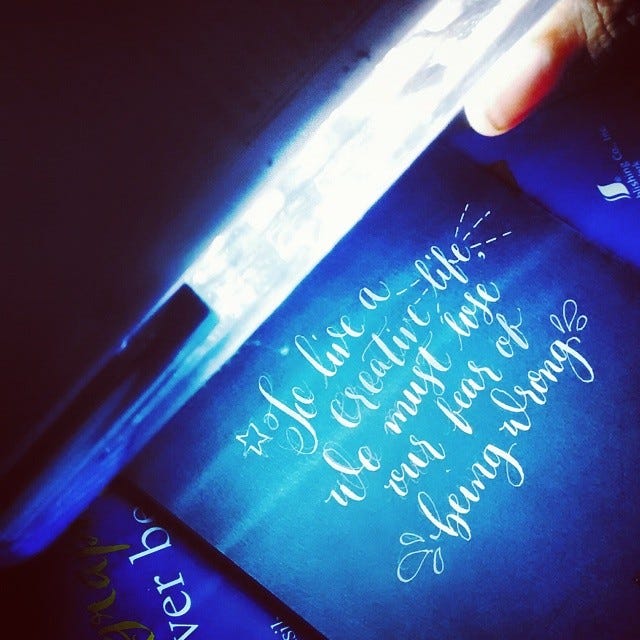 To live a
creative life,
we must lose
our fear of
being wrong
ver be